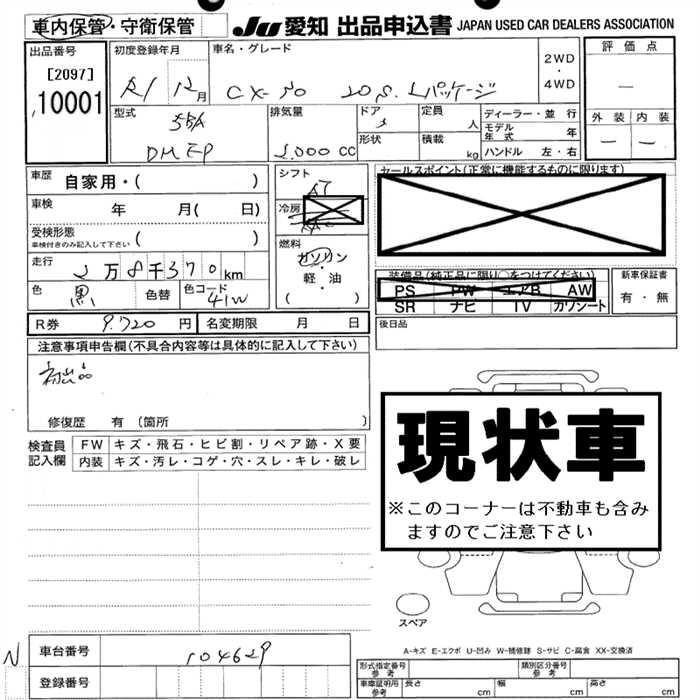 車内保管・守衛保管 JU 愛知 出品申込書 JAPAN USED CAR DEALERS ASSOCIATION
出品番号 初度登録年月 車名・グレード 評価点
[2097] R1 12月 CX-30 20S. Lパッケージ 2WD・4WD —
10001
型式 5BA DMEP 排気量 2,000 CC ドア 5 定員 人 ディーラー・並行 外装 内装
形状 積載 kg モデル年式 年 — —
ハンドル 左・右
車歴 自家用・( ) シフト AT セールスポイント(正常に機能するものに限ります)
車検 年 月( 日) 冷房
受検形態 ( )
車検付きのみ記入して下さい
燃料 ガソリン・軽・油 ( )
走行 2万8千370km 装備品(純正品に限り○をつけてください) 新車保証書
色 黒 色替 色コード 41W PS PW エアB AW 有・無
SR ナビ TV カワシート
R券 9,720 円 名変期限 月 日 後日品
注意事項申告欄(不具合内容等は具体的に記入して下さい)
初出品
修復歴 有 (箇所 )
現状車
※このコーナーは不動車も含み
ますのでご注意下さい
検査員記入欄 FW キズ・飛石・ヒビ割・リペア跡・X要
内装 キズ・汚レ・コゲ・穴・スレ・キレ・破レ
スペア
A-キズ E-エクボ U-凹み W-補修跡 S-サビ C-腐食 XX-交換済
N 車台番号 104629
登録番号
形式指定番号 参考 類別区分番号 参考
車庫証明用 参考 長さ cm 幅 cm 高さ cm